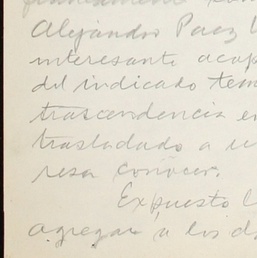 Alejandro Paez
interesante acop
del indicado tem
trascendencia e
trasladado a u
resa conocer.
Expuesto
agregar a los d